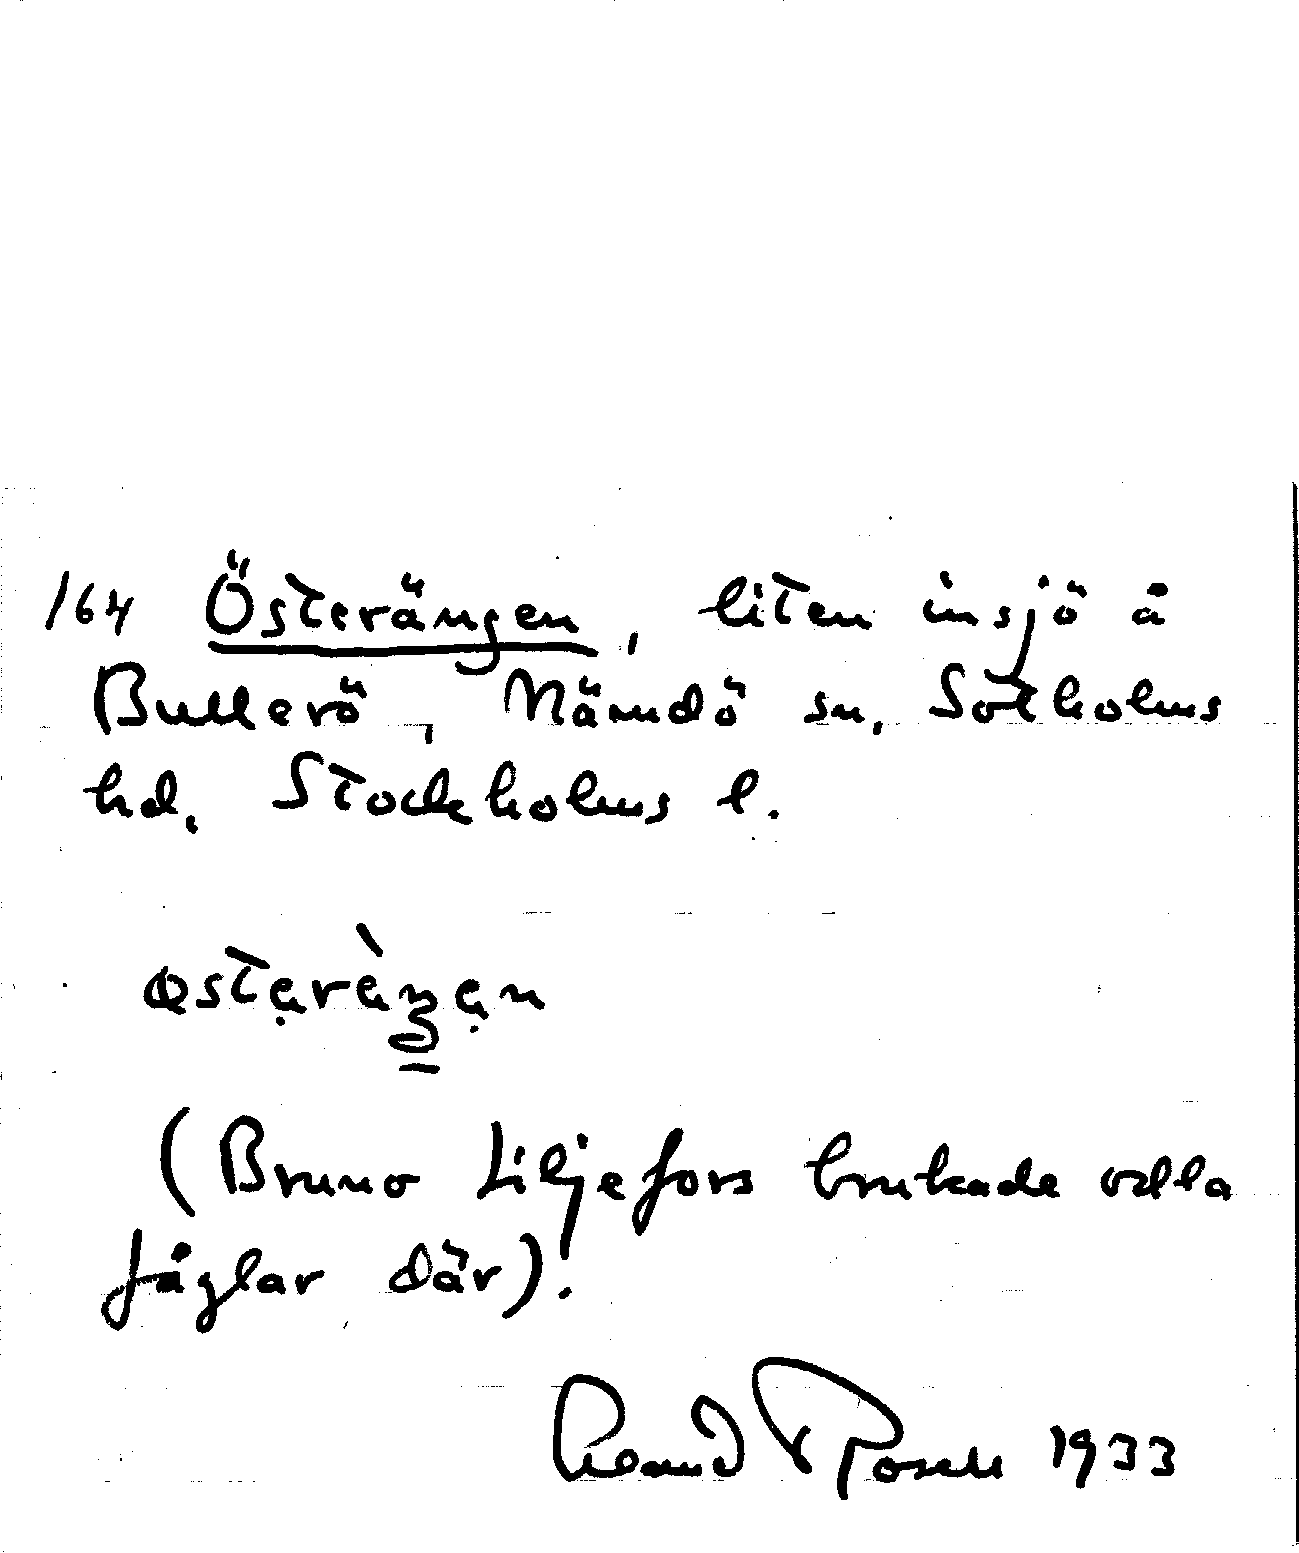 164 Österängen, liten insjö å
Bullerö, Nämdö sn, Sotholms
hd, Stockholms l.
(Bruno Liljefors brukade odla
fåglar där).
1933